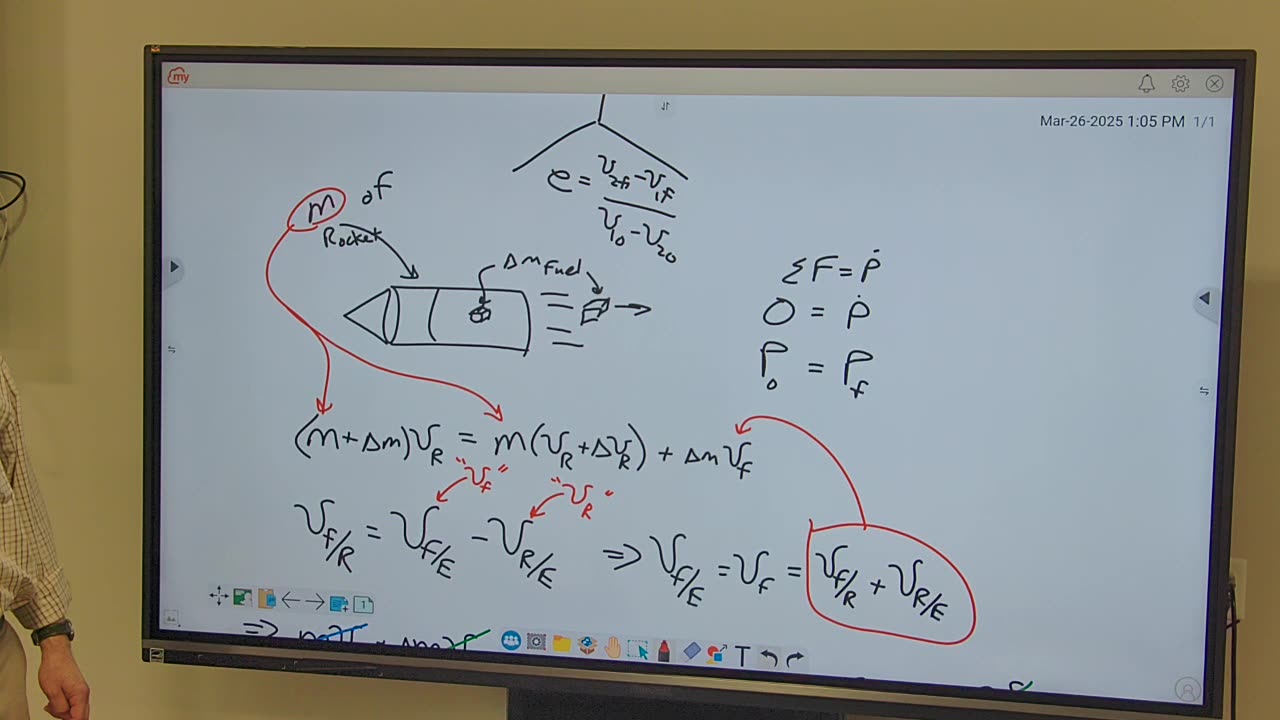 my
Mar-26-2025 1:05 PM 1/1
e = (v_2f - v_1f) / (v_1o - v_2o)
m of
Rocket
Δm Fuel
ΣF = Ṗ
0 = Ṗ
P_o = P_f
(m+Δm)v_R = m(v_R + Δv_R) + Δm v_f
"v_f" "v_R"
v_f/R = v_f/E - v_R/E ⇒ v_f/E = v_f = v_f/R + v_R/E
1
T